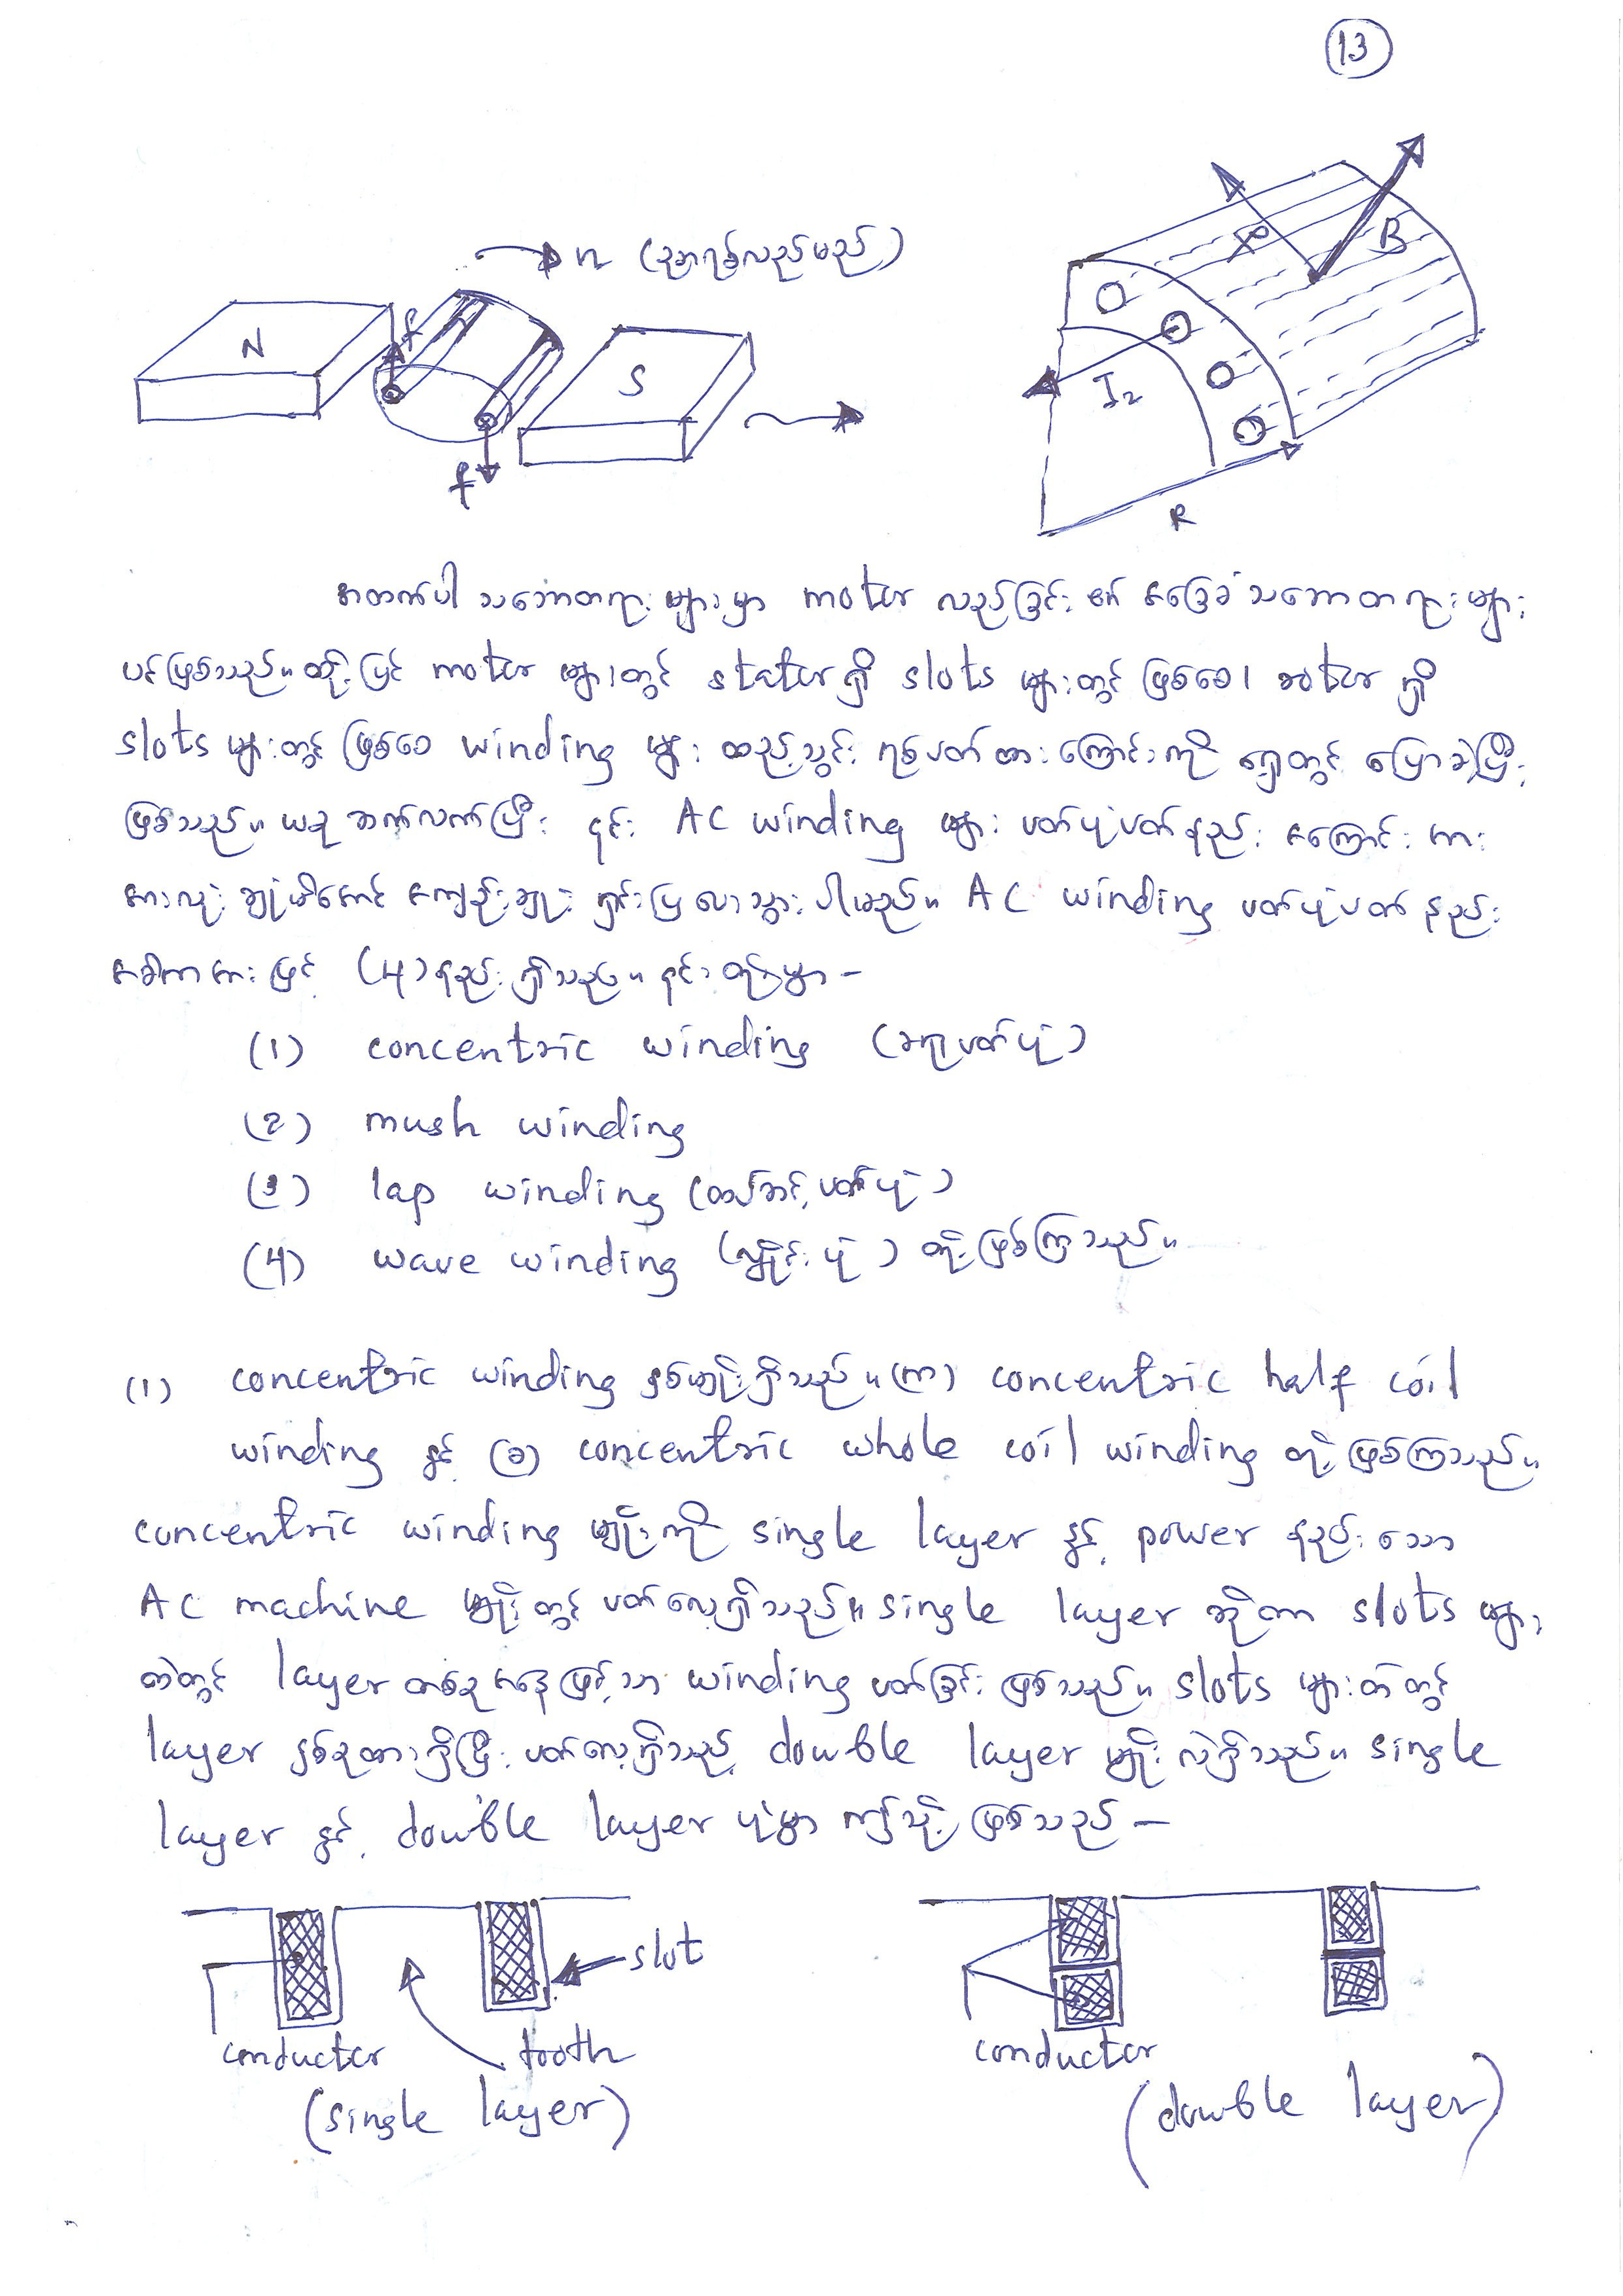 13
n (ဥဒါဟရုဏ်လည်မည်)
N
f
S
f
B
I₂
R
အထက်ပါ သဘောတရားများမှာ motor လည်ခြင်း ၏ အခြေခံ သဘောတရားများ
ပင်ဖြစ်သည်။ ထို့ပြင် motor များတွင် stator ရှိ slots များတွင် ဖြစ်စေ၊ rotor ရှိ
slots များတွင် ဖြစ်စေ winding များ ထည့်သွင်း ရစ်ပတ်ထားကြောင်းကို ရှေ့တွင် ပြောခဲ့ပြီး
ဖြစ်သည်။ ယခု ဆက်လက်ပြီး ၎င်း AC winding များ ပတ်ပုံပတ်နည်း အကြောင်းအား
အားလုံး ခြုံမိအောင် အကျဉ်းချုံး ရှင်းပြ သွားပါမည်။ AC winding ပတ်ပုံပတ်နည်း
အခါအားဖြင့် (4) နည်း ရှိသည်။ ၎င်းတို့မှာ –
(1) concentric winding (ခရုပတ်ပုံ)
(2) mush winding
(3) lap winding (ထပ်ဆင့်ပတ်ပုံ)
(4) wave winding (လှိုင်းပုံ) တို့ဖြစ်ကြသည်။
(1) concentric winding နှစ်မျိုးရှိသည်။ (က) concentric half coil
winding နှင့် (ခ) concentric whole coil winding တို့ ဖြစ်ကြသည်။
concentric winding မျိုးကို single layer နှင့် power နည်းသော
AC machine မျိုးတွင် ပတ်လေ့ရှိသည်။ single layer ဆိုတာ slots များ
ထဲတွင် layer တစ်ခုအနေဖြင့်သာ winding ပတ်ခြင်း ဖြစ်သည်။ slots များထဲတွင်
layer နှစ်ခုထားရှိပြီး ပတ်လေ့ရှိသည့် double layer မျိုးလဲရှိသည်။ single
layer နှင့် double layer ပုံမှာ ဤသို့ ဖြစ်သည် –
slot
conductor
tooth
(single layer)
conductor
(double layer)